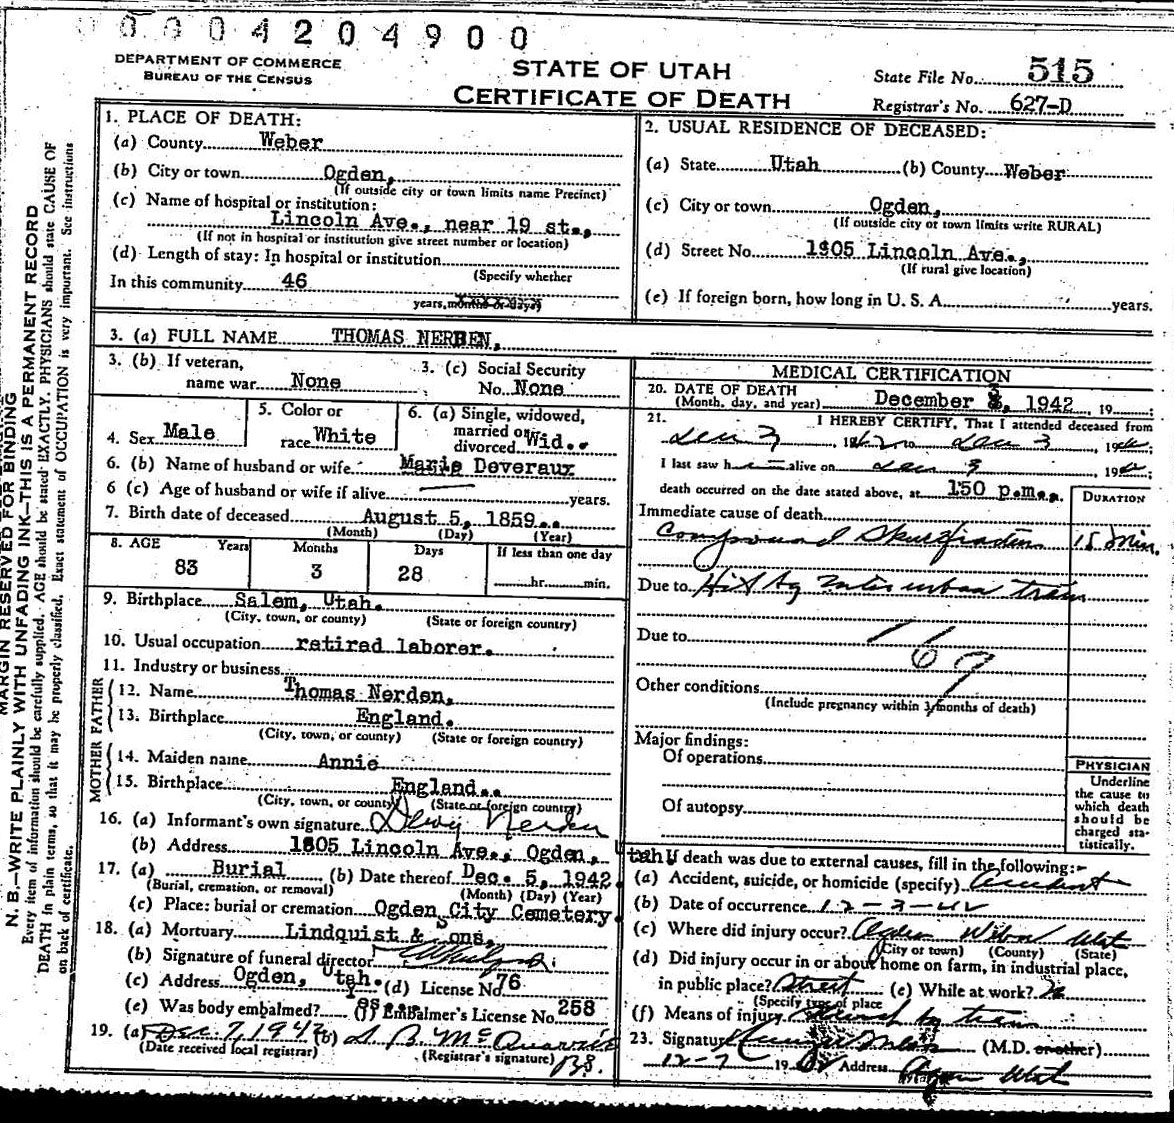 0004204900
DEPARTMENT OF COMMERCE
BUREAU OF THE CENSUS
STATE OF UTAH
CERTIFICATE OF DEATH
State File No. 515
Registrar's No. 627-D
MARGIN RESERVED FOR BINDING
N. B.—WRITE PLAINLY WITH UNFADING INK—THIS IS A PERMANENT RECORD
Every item of information should be carefully supplied. AGE should be stated EXACTLY. PHYSICIANS should state CAUSE OF
DEATH in plain terms, so that it may be properly classified. Exact statement of OCCUPATION is very important. See instructions
on back of certificate.
1. PLACE OF DEATH:
(a) County Weber
(b) City or town Ogden,
(If outside city or town limits name Precinct)
(c) Name of hospital or institution:
Lincoln Ave., near 19 st.,
(If not in hospital or institution give street number or location)
(d) Length of stay: In hospital or institution
(Specify whether
In this community 46
years, months or days)
2. USUAL RESIDENCE OF DECEASED:
(a) State Utah (b) County Weber
(c) City or town Ogden,
(If outside city or town limits write RURAL)
(d) Street No. 1805 Lincoln Ave.,
(If rural give location)
(e) If foreign born, how long in U. S. A. years.
3. (a) FULL NAME THOMAS NERDEN,
3. (b) If veteran,
name war None
3. (c) Social Security
No. None
4. Sex Male
5. Color or
race White
6. (a) Single, widowed,
married or
divorced Wid..
6. (b) Name of husband or wife Marie Deveraux
6 (c) Age of husband or wife if alive years.
7. Birth date of deceased August 5, 1859..
(Month) (Day) (Year)
8. AGE Years Months Days If less than one day
83 3 28 hr. min.
9. Birthplace Salem, Utah.
(City, town, or county) (State or foreign country)
10. Usual occupation retired laborer.
11. Industry or business
FATHER
12. Name Thomas Nerden,
13. Birthplace England.
(City, town, or county) (State or foreign country)
MOTHER
14. Maiden name Annie
15. Birthplace England..
(City, town, or county) (State or foreign country)
16. (a) Informant's own signature Dewy Nerden
(b) Address 1805 Lincoln Ave., Ogden, Utah
17. (a) Burial (b) Date thereof Dec. 5, 1942.
(Burial, cremation, or removal) (Month) (Day) (Year)
(c) Place: burial or cremation Ogden City Cemetery.
18. (a) Mortuary Lindquist & Sons,
(b) Signature of funeral director
(c) Address Ogden, Utah. (d) License No. 76
(e) Was body embalmed? Yes... (f) Embalmer's License No. 258
19. (a) Dec. 7, 1942 (b) S. B. McQuarrie
(Date received local registrar) (Registrar's signature) BS.
MEDICAL CERTIFICATION
20. DATE OF DEATH
(Month, day, and year) December 3, 1942, 19 ;
21. I HEREBY CERTIFY, That I attended deceased from
Dec 3, 1942 to Dec 3, 1942
I last saw h alive on Dec 3 1942;
death occurred on the date stated above, at 150 p.m..
DURATION
Immediate cause of death
Compound Skull 15 Min.
Due to Hit by Interurban train
Due to
169
Other conditions
(Include pregnancy within 3 months of death)
Major findings:
Of operations
Of autopsy
PHYSICIAN
Underline
the cause to
which death
should be
charged sta-
tistically.
If death was due to external causes, fill in the following:-
(a) Accident, suicide, or homicide (specify) Accident
(b) Date of occurrence 12-3-42
(c) Where did injury occur? Ogden Weber Utah
(City or town) (County) (State)
(d) Did injury occur in or about home on farm, in industrial place,
in public place? Street (e) While at work? No
(Specify type of place
(f) Means of injury Struck by train
23. Signature (M.D. or other)
12-7 1942 Address Ogden Utah